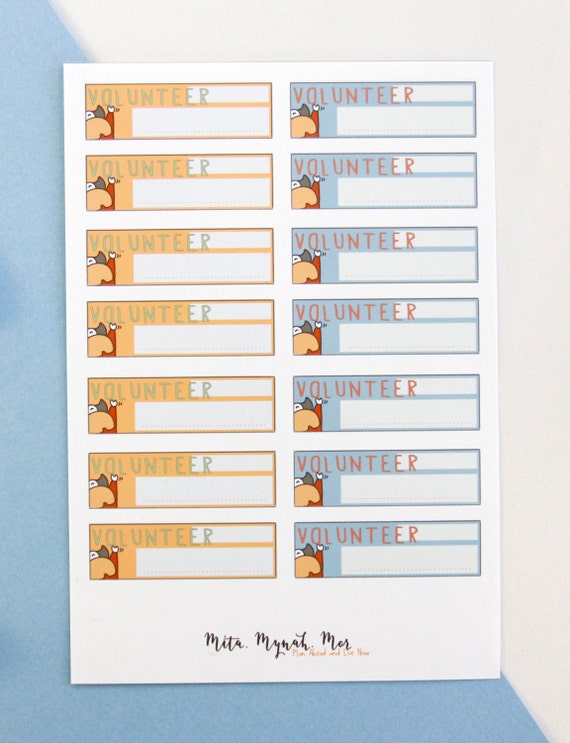 VOLUNTEER VOLUNTEER
VOLUNTEER VOLUNTEER
VOLUNTEER VOLUNTEER
VOLUNTEER VOLUNTEER
VOLUNTEER VOLUNTEER
VOLUNTEER VOLUNTEER
VOLUNTEER VOLUNTEER
Mita. Mynah. Mor
Plan Ahead and Live Now